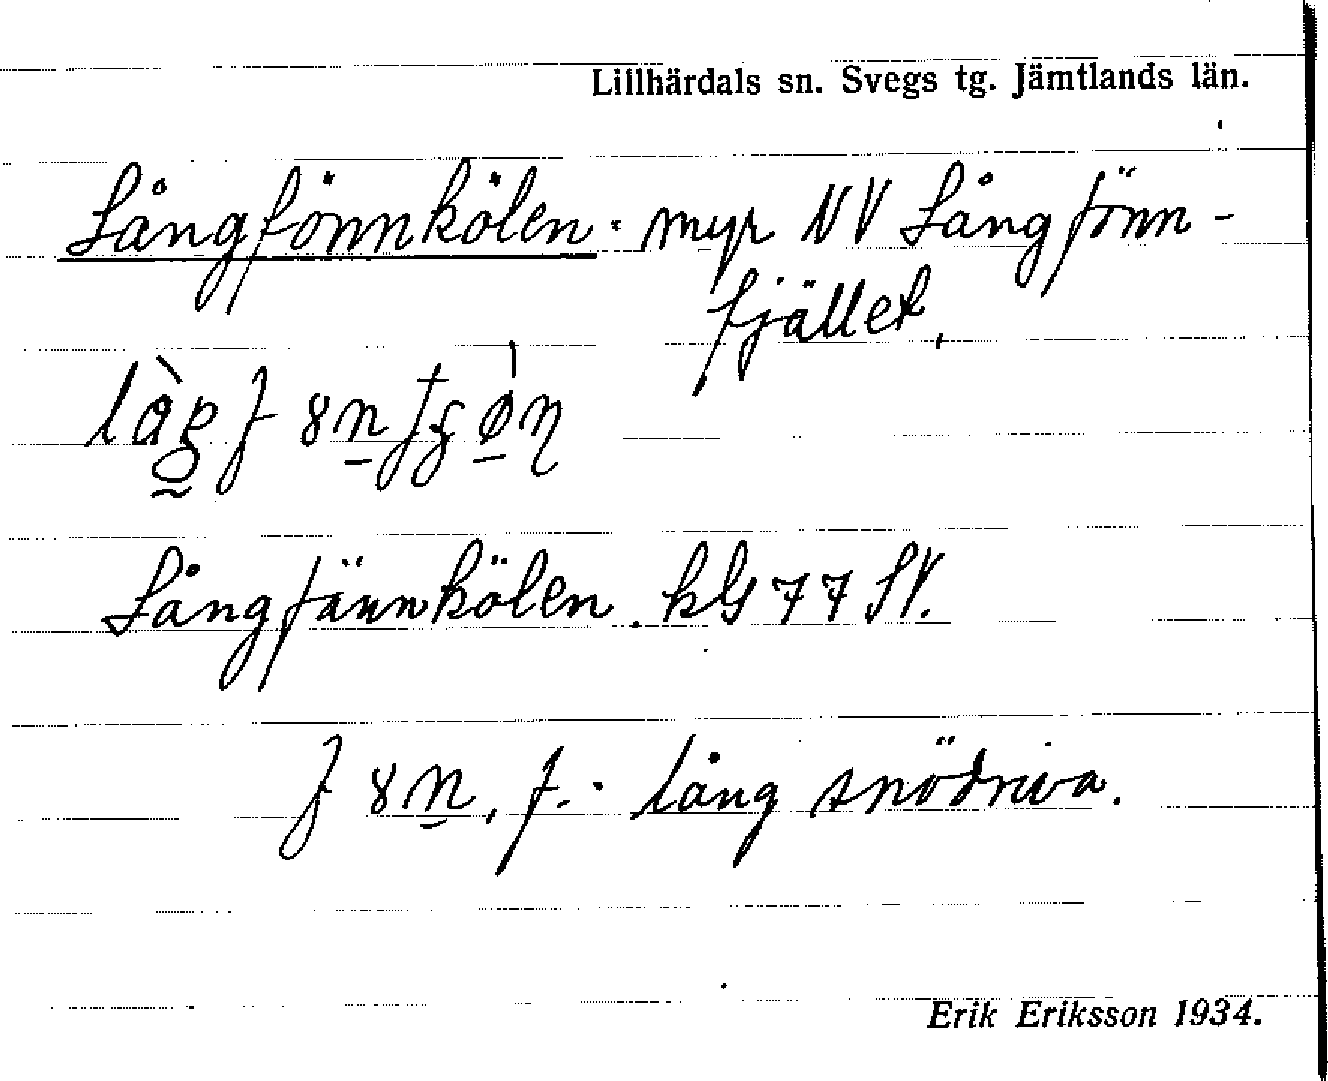 Lillhärdals sn. Svegs tg. Jämtlands län.
Långfönnkölen: myr NV Långfönn-
fjället,
Långfännkölen. kbl 77 SV.
f., f.: lång snödriva.
Erik Eriksson 1934.